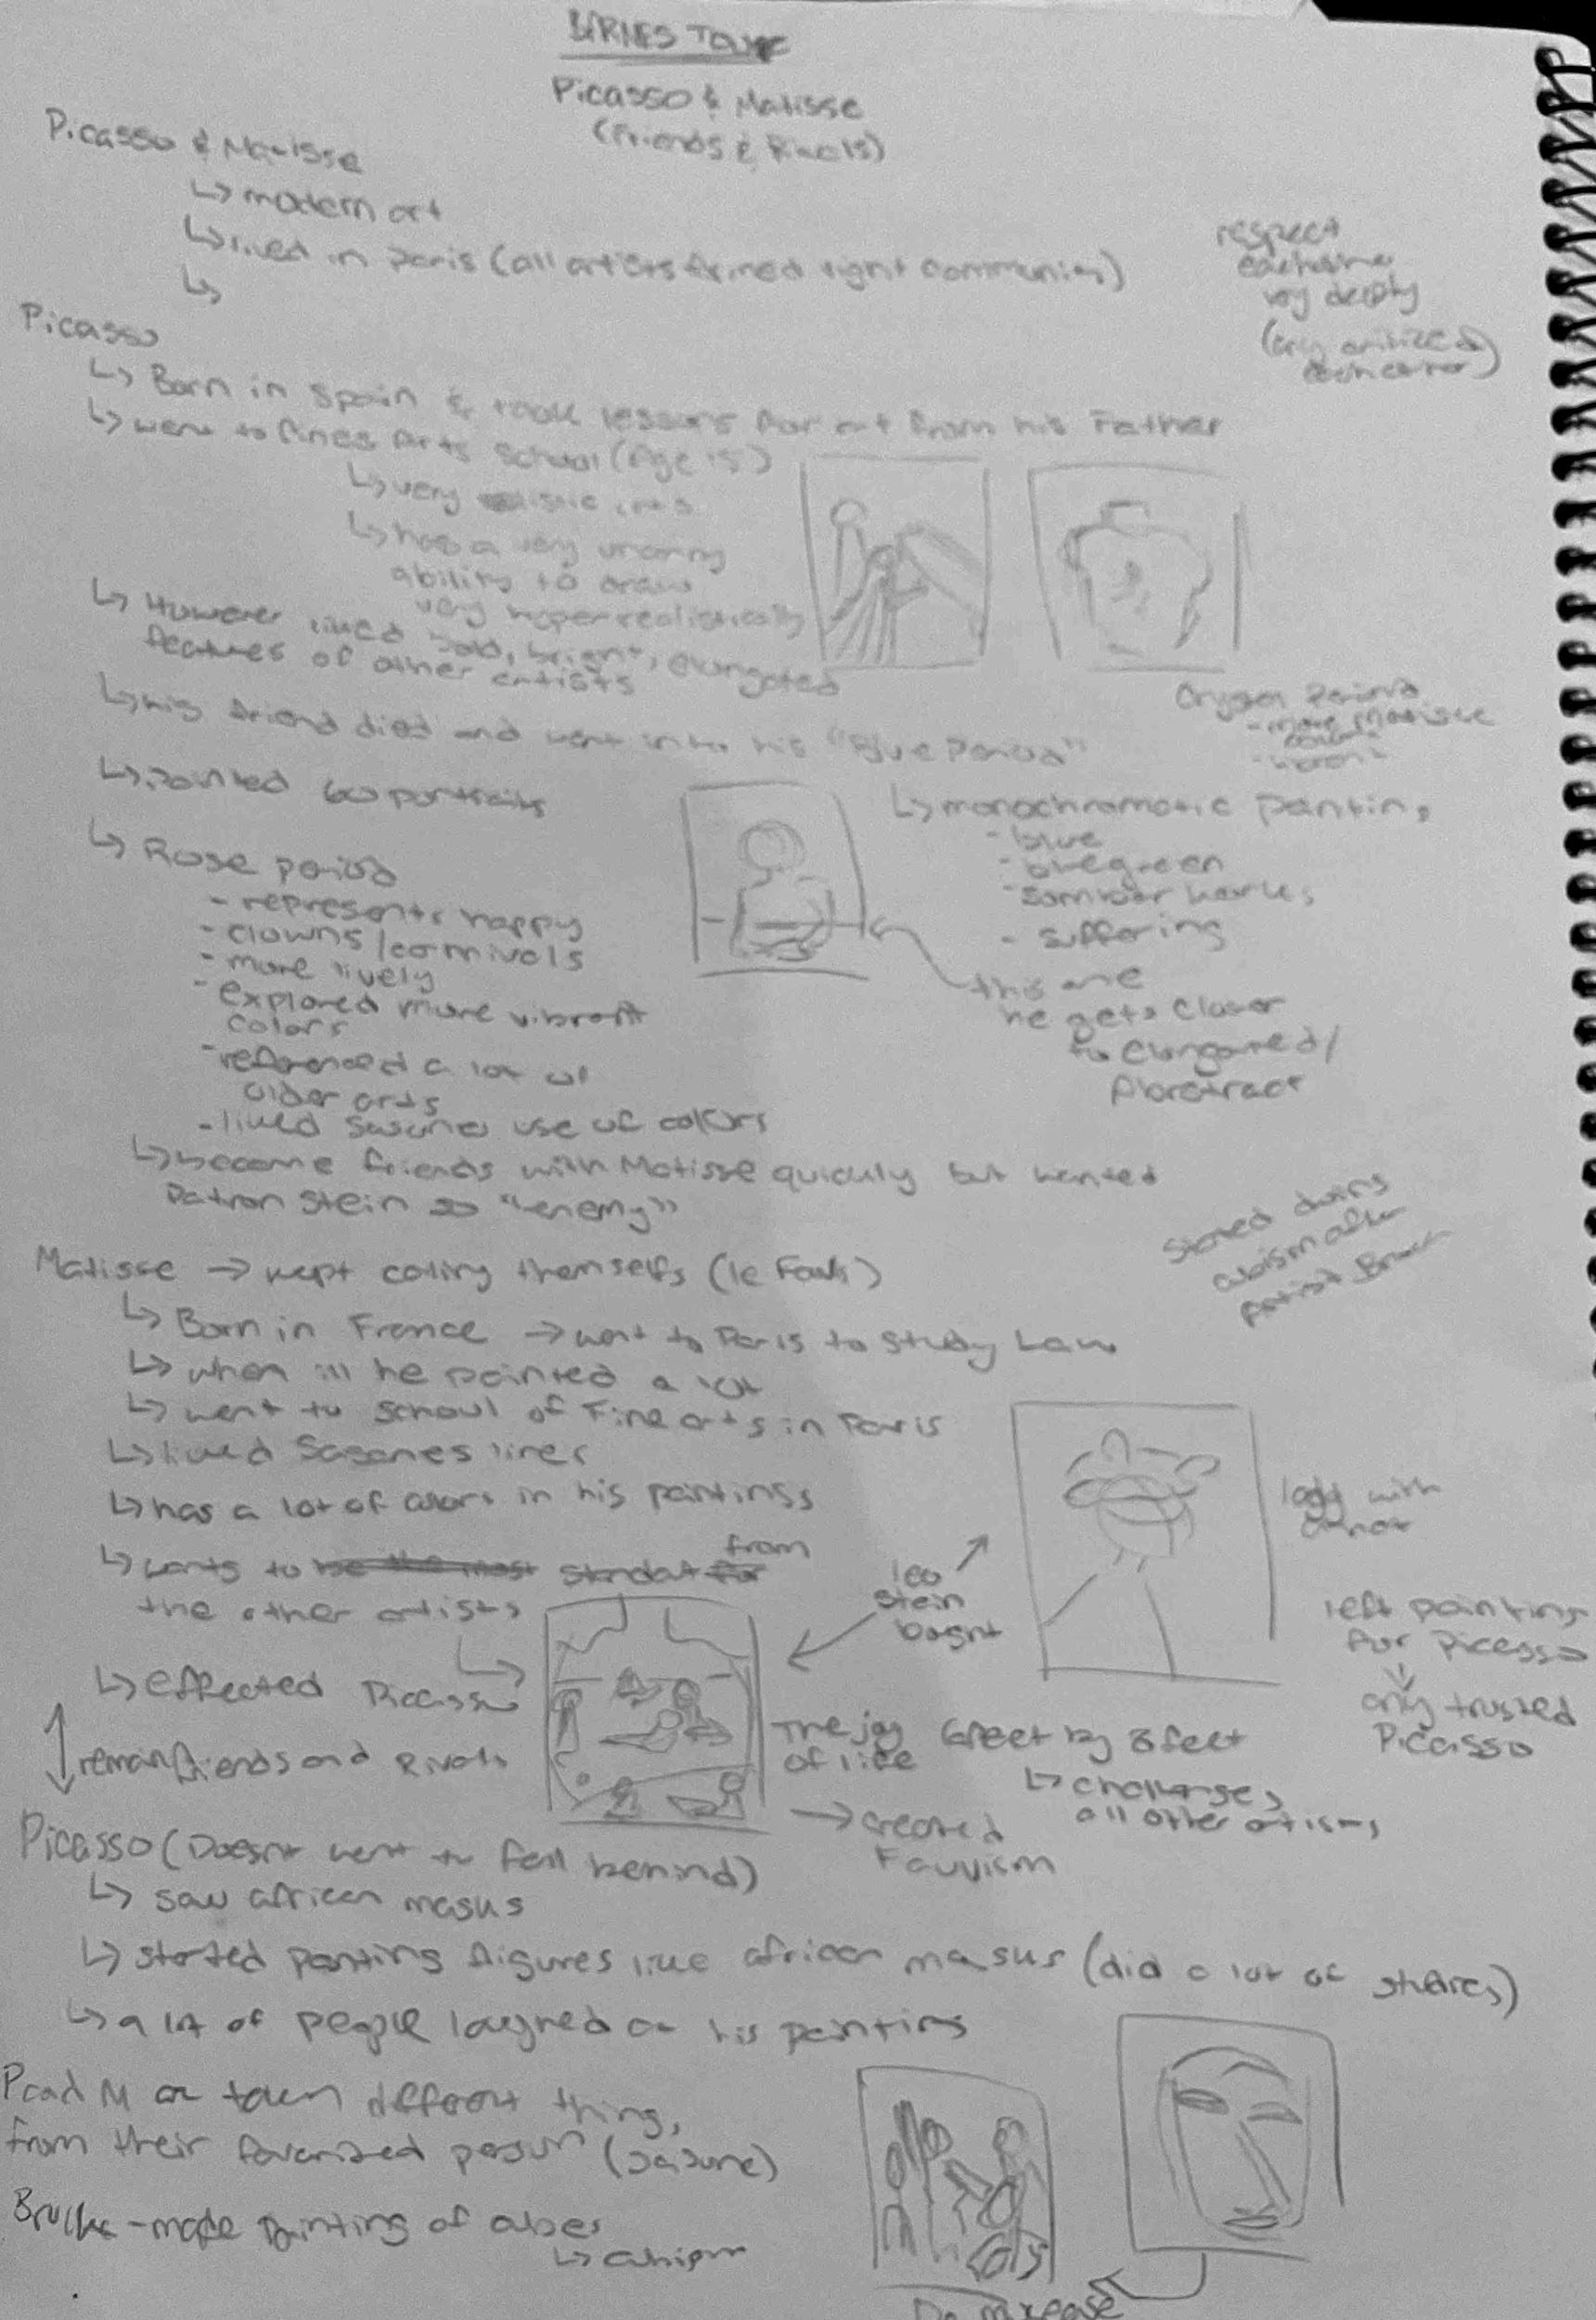 Picasso & Matisse
(Friends & Rivals)
Picasso & Matisse
↳ modern art
↳ lived in Paris (all artists formed tight community)
↳
respect
eachother
very deeply
(only critized
eachother)
Picasso
↳ Born in Spain & took lessons for art from his Father
↳ went to fines Arts School (Age 15)
↳ very
↳ has a very uncanny
ability to draw
very hyperrealistically
↳ However liked bold, bright, elongated
features of other artists
↳ his friend died and went into his "Blue Period"
Period
- more Matisse
↳ Painted 60 portraits
↳ monochromatic painting
- blue
- bluegreen
- somber
- suffering
this one
he gets closer
to elongated/
Abstract
↳ Rose period
- represents happy
- clowns / carnivals
- more lively
- explored more vibrant
colors
- referenced a lot of
older arts
- liked use of colors
↳ become friends with Matisse quickly but wanted
Patron Stein so "enemy"
Started doing
cubism after
Artist
Matisse → kept calling themselfs (le )
↳ Born in France → went to Paris to Study Law
↳ when ill he painted a lot
↳ went to school of Fine arts in Paris
↳ liked lines
↳ has a lot of colors in his paintings
↳ wants to be the most standout for from
the other artists
leo
stein
boght
lady with
a hat
left painting
for Picasso
↓
only trusted
Picasso
↳ effected Picasso
remain friends and Rivals
The joy
of life
6feet by 8feet
↳ challenges
all other artists
→ created
Fauvism
Picasso (Doesnt want to fall behind)
↳ saw african masks
↳ started painting figures like african masks (did a lot of studies)
↳ a lot of people laughed at his painting
P and M taken different things
from their favorized person
made painting of cubes
↳ cubism